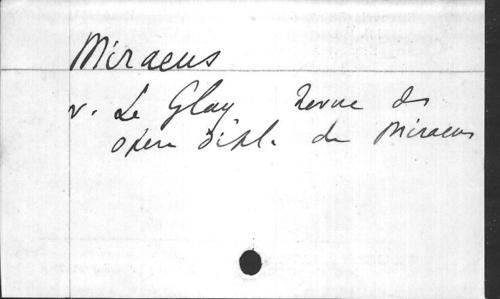 Miraeus
v. Le Glay Revue des
opera dipl. de Miraeus